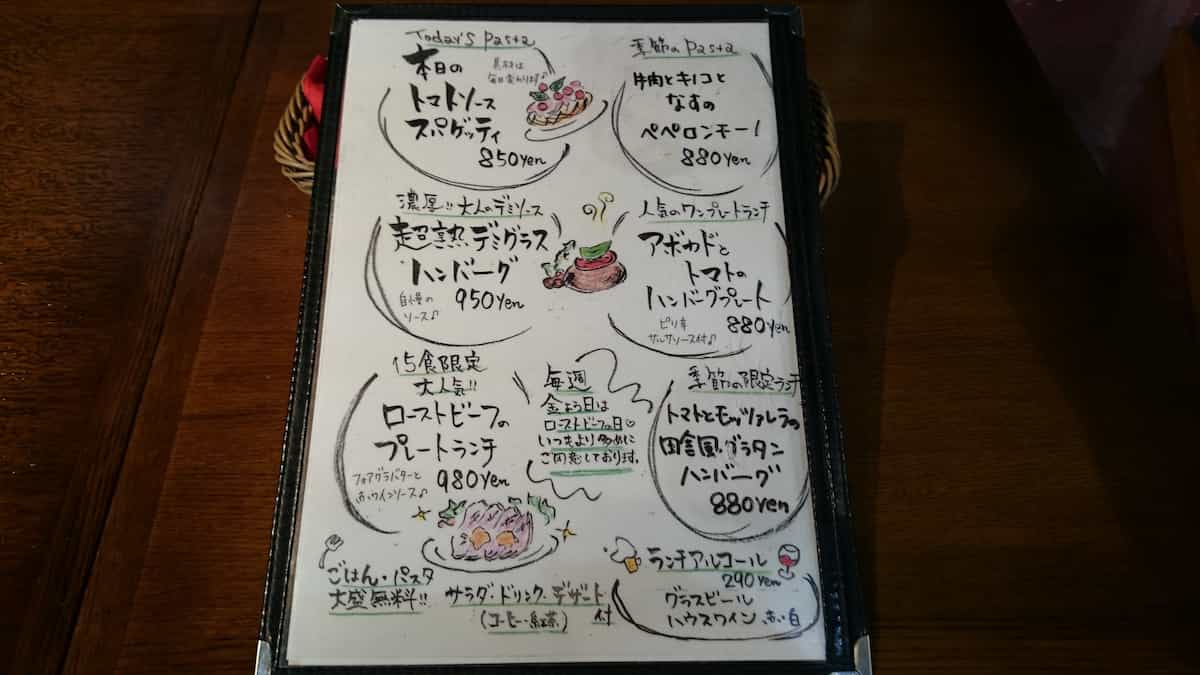 Today's Pasta
本日の
具材は
毎日変わります♪
トマトソース
スパゲッティ
850yen
季節の Pasta
牛肉とキノコと
なすの
ペペロンチーノ
880yen
濃厚!! 大人のデミソース
超熟デミグラス
ハンバーグ
自慢の
ソース♪
950yen
人気のワンプレートランチ
アボカドと
トマトの
ハンバーグプレート
ピリ辛
サルサソース付♪
880yen
15食限定
大人気!!
ローストビーフの
プレートランチ
フォアグラバターと
赤ワインソース♪
980yen
毎週
金よう日は
ローストビーフの日♡
いつもより多めに
ご用意しております。
季節の限定ランチ
トマトとモッツァレラの
田舎風・グラタン
ハンバーグ
880yen
ごはん・パスタ
大盛無料!!
サラダ・ドリンク・デザート
(コーヒー・紅茶) 付
ランチアルコール
290yen
グラスビール
ハウスワイン 赤・白